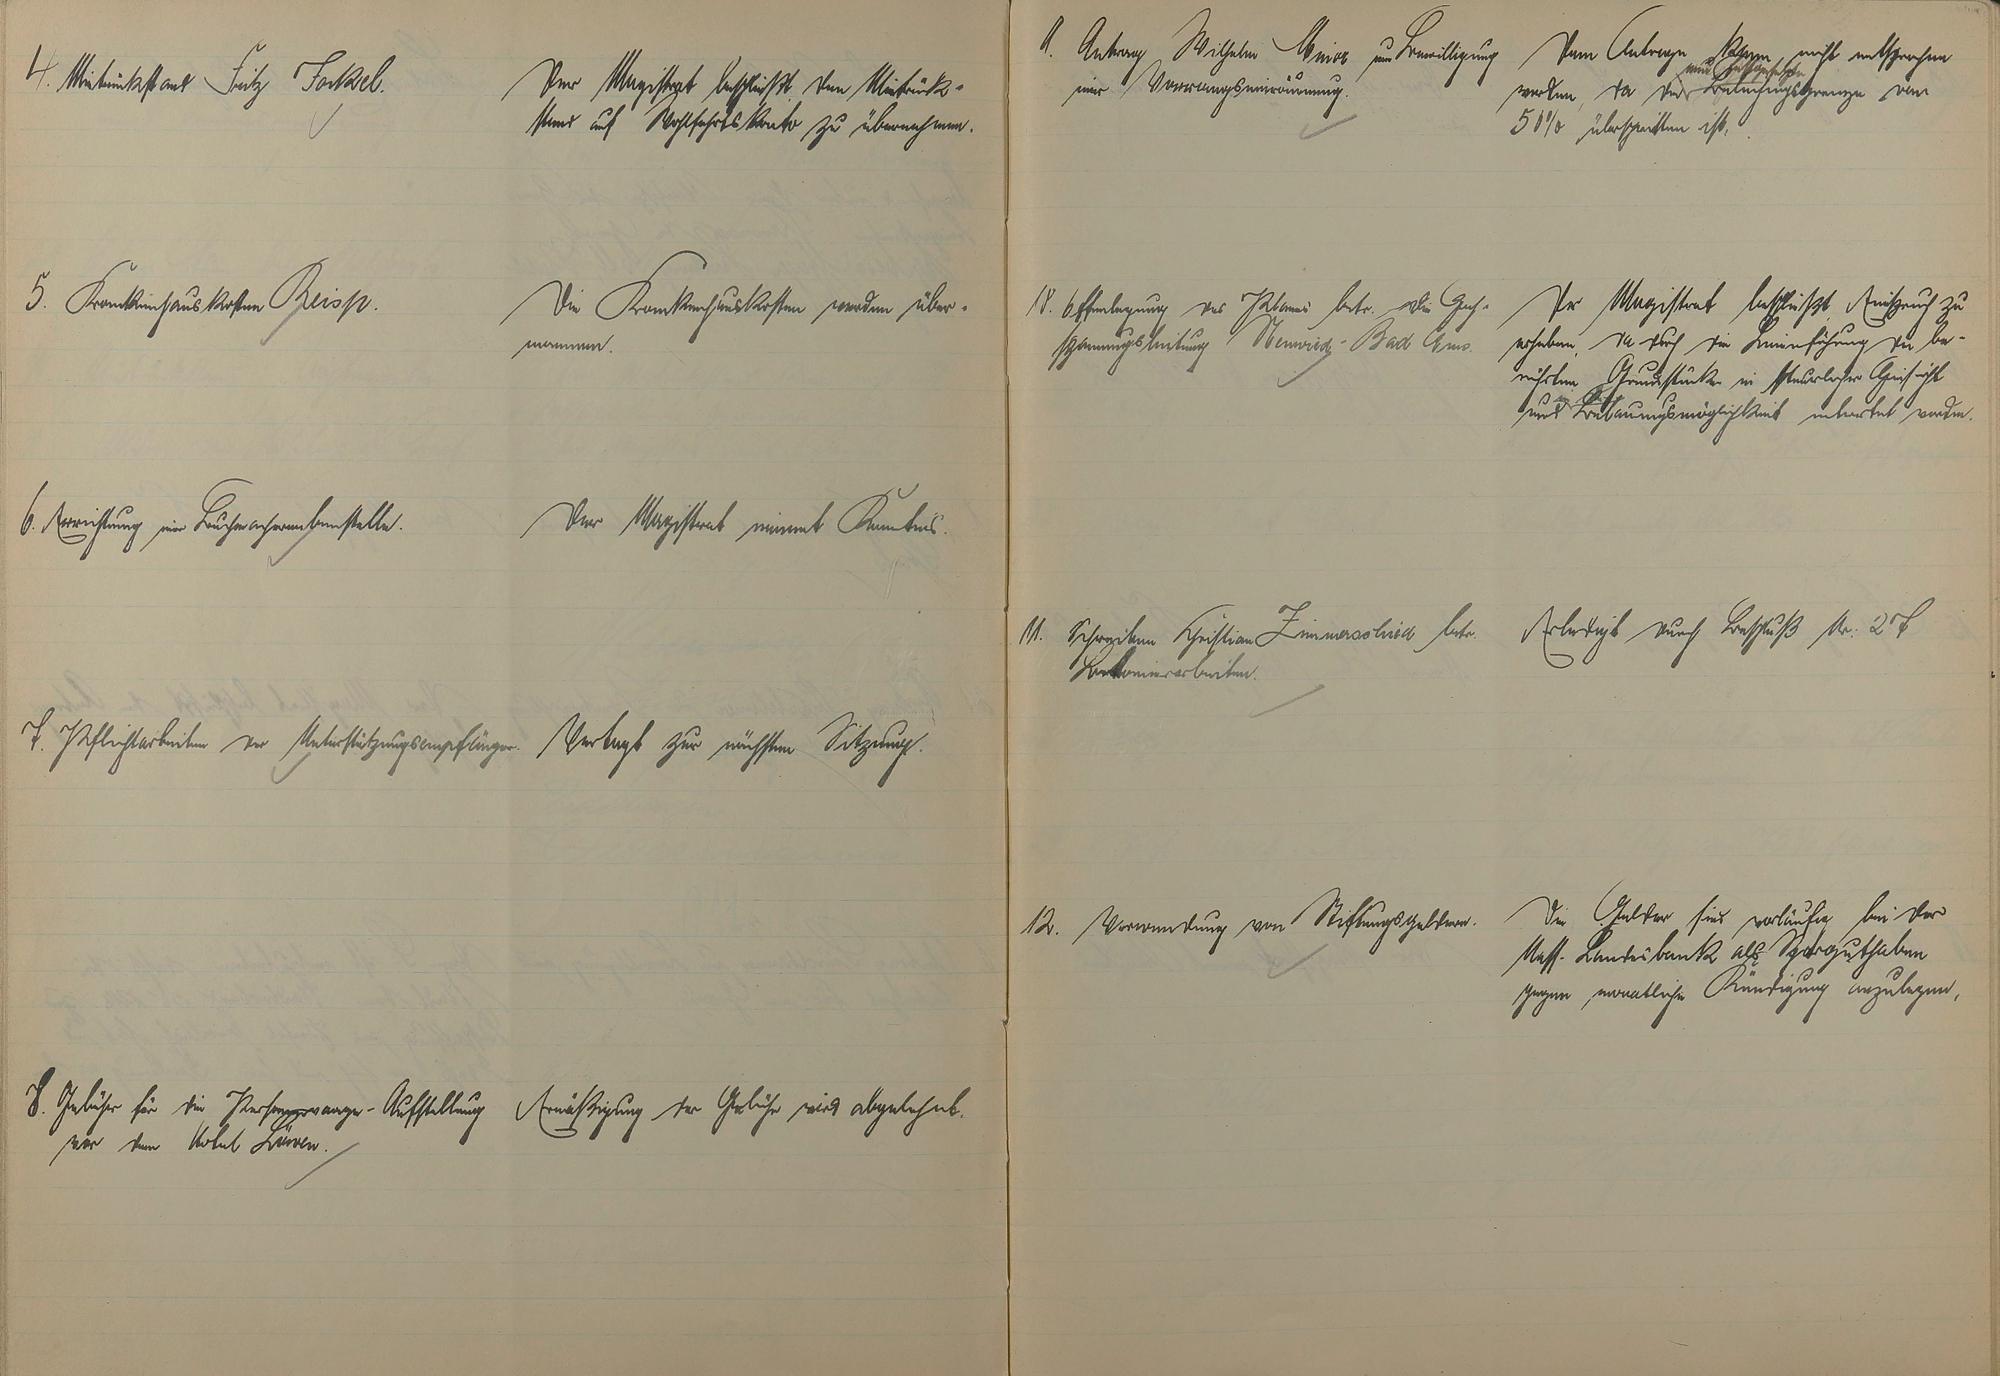 4. Mietrückstand Fritz Jockel.
Der Magistrat beschließt den Mietrück-
stand auf Wohlfahrtskonto zu übernehmen.
5. Krankenhauskosten Reisp.
Die Krankenhauskosten werden über-
nommen.
6. Errichtung einer Buchmachernebenstelle.
Der Magistrat nimmt Kenntnis.
7. Pflichtarbeiten der Unterstützungsempfänger.
Vertagt zur nächsten Sitzung.
8. Gebühr für die Personenwaage-Aufstellung
vor dem Hotel Löwen.
Ermäßigung der Gebühr wird abgelehnt.
9. Antrag Wilhelm um Bewilligung
einer Vorrangseinräumung.
Dem Antrage kann nicht entsprochen
werden, da die Beleihungsgrenze von
50% überschritten ist.
10. Offenlegung des Planes betr. die Hoch-
spannungsleitung Neuwied-Bad Ems.
Der Magistrat beschließt Einspruch zu
erheben, da durch die Linienführung die be-
rührten Grundstücke in steuerlicher Hinsicht
und Bebauungsmöglichkeit entwertet werden.
11. Schreiben Christian Zimmerschied betr.
Betonierarbeiten.
Erledigt durch Beschluß Nr. 27
12. Verwendung von Stiftungsgeldern.
Die Gelder sind vorläufig bei der
Nass. Landesbank als Sparguthaben
gegen monatliche Kündigung anzulegen.